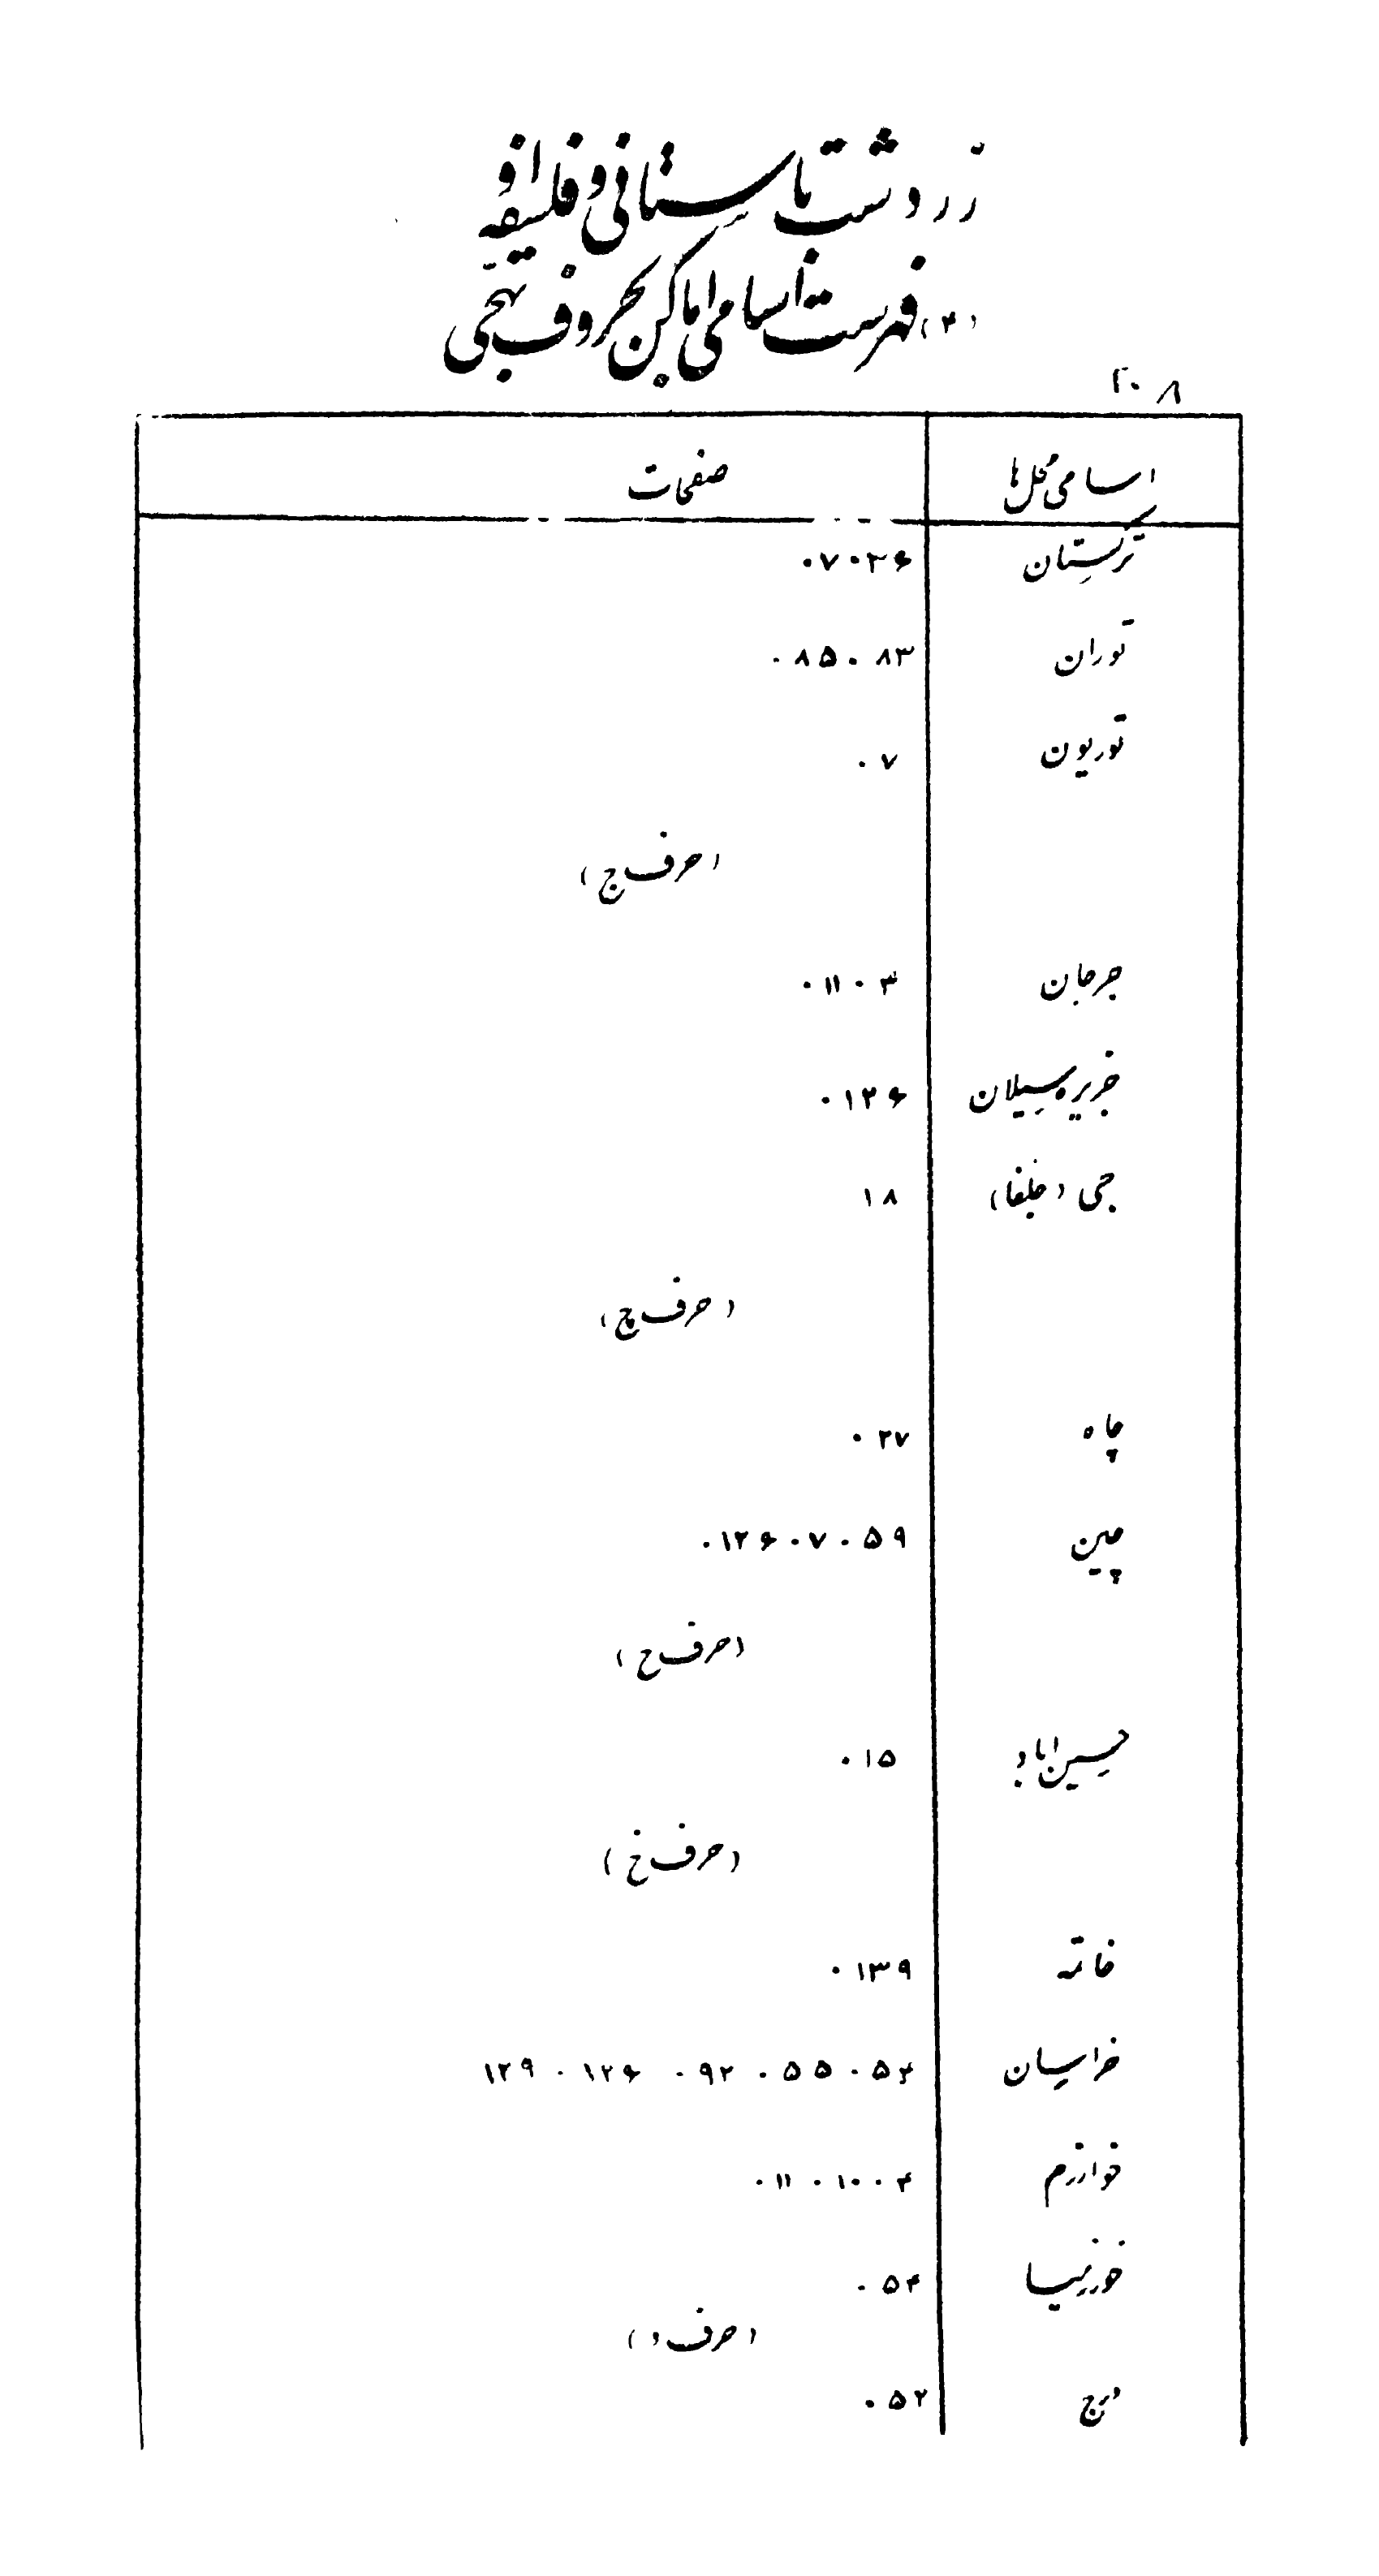 زردشت باستانی و فلسفه او
(۴) فهرست اسامی اماکن بحروف تهجی
۲۰۸
اسامی محل‌ها صفحات
ترکستان ۲۶ . ۷ .
توران ۸۳ . ۸۵ .
توریون ۷ .
(حرف ج)
جرجان ۳ . ۱۱ .
جزیره سیلان ۱۲۶ .
جی (جلفا) ۱۸
(حرف چ)
چاه ۲۷ .
چین ۵۹ . ۷ . ۱۲۶ .
(حرف ح)
حسین اباد ۱۵ .
(حرف خ)
خاتمه ۱۳۹ .
خراسان ۵۴ . ۵۵ . ۹۲ . ۱۲۶ . ۱۲۹
خوارزم ۴ . ۱۰ . ۱۱ .
خورنیسا ۵۴ .
(حرف د)
۵۲ .